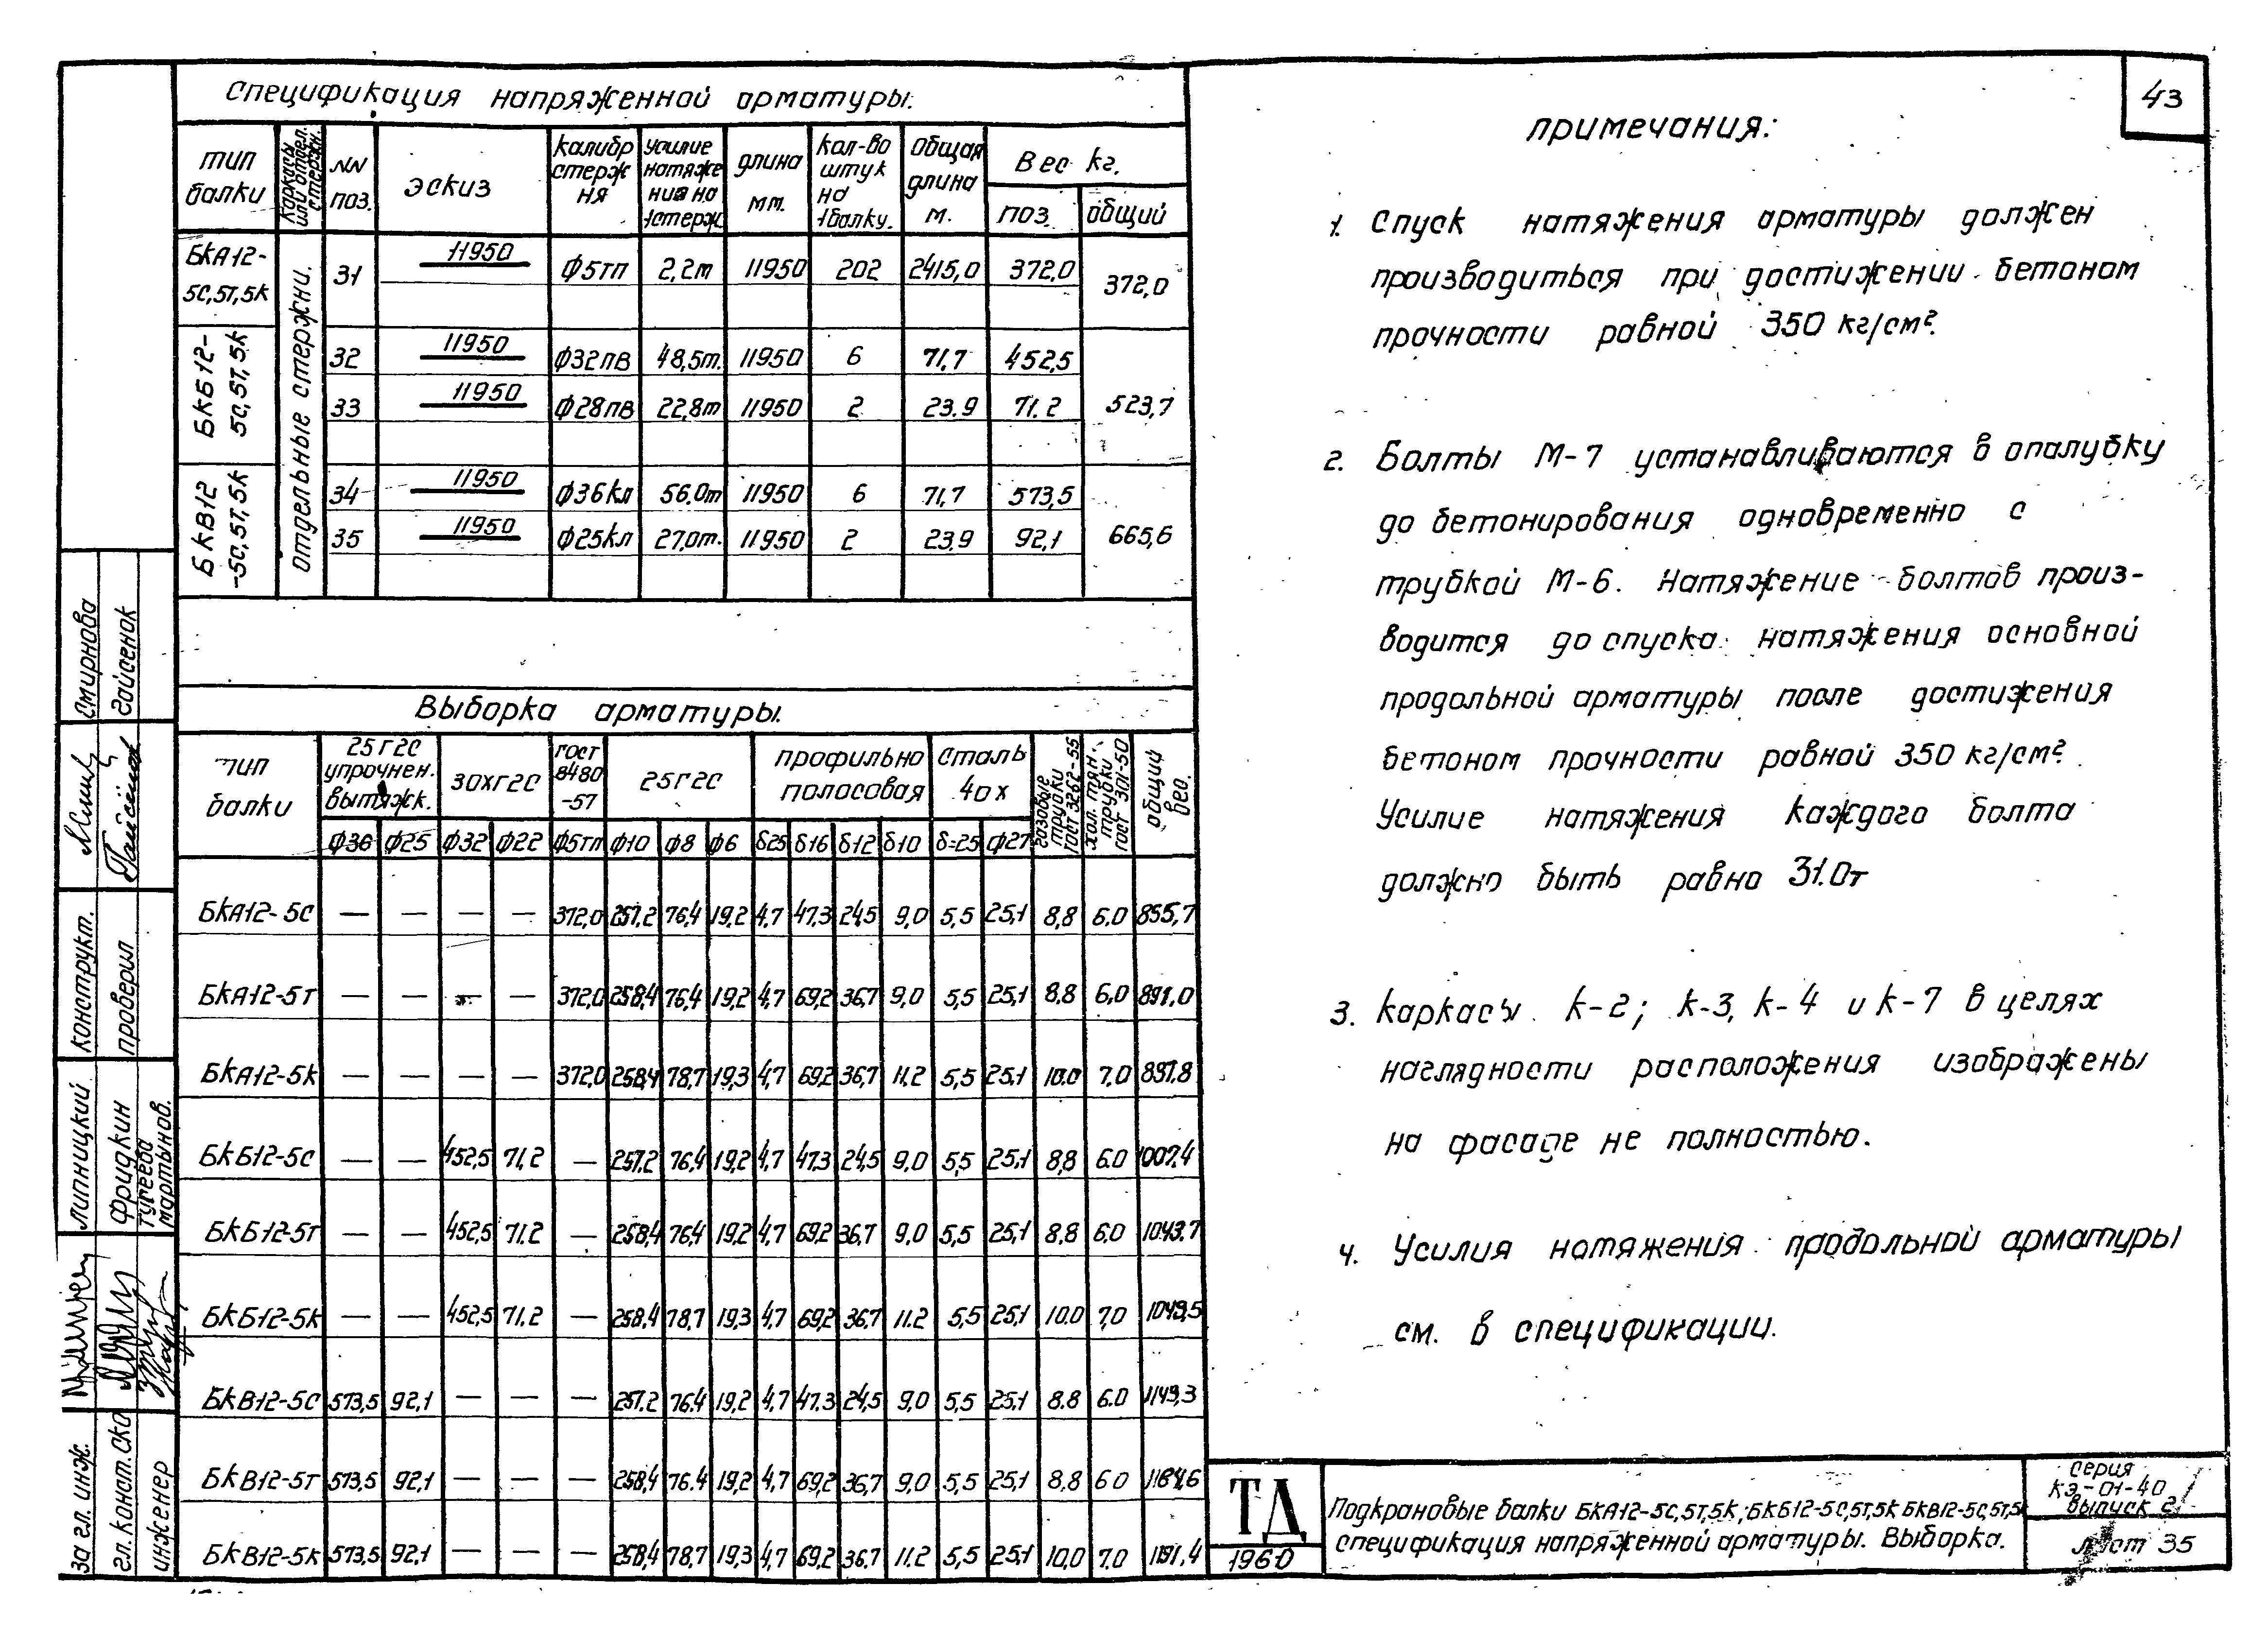 43
Спецификация напряженной арматуры.
тип балки | каркасы или отдел. стержн. | NN поз. | эскиз | калибр стержня | усилие натяжения на 1стерж | длина мм. | кол-во штук на 1балку. | общая длина м. | Вес кг. поз. | общий
БКА12-5С,5Т,5К | отдельные стержни. | 31 | 11950 | ф5тп | 2,2т | 11950 | 202 | 2415,0 | 372,0 | 372,0
БКБ12-5С,5Т,5К | 32 | 11950 | ф32пв | 48,5т. | 11950 | 6 | 71,7 | 452,5 | 523,7
33 | 11950 | ф28пв | 22,8т | 11950 | 2 | 23.9 | 71.2
БКВ12-5С,5Т,5К | 34 | 11950 | ф36кл | 56.0т | 11950 | 6 | 71,7 | 573,5 | 665,6
35 | 11950 | ф25кл | 27.0т. | 11950 | 2 | 23.9 | 92,1
Выборка арматуры.
тип балки | 25г2с упрочнен. вытяжк. | 30хг2с | гост 8480-57 | 25г2с | профильно полосовая | сталь 40х | газовые трубки гост 3262-55 | хол. тян. трубки гост 301-50 | общий вес.
ф36 | ф25 | ф32 | ф22 | ф5тп | ф10 | ф8 | ф6 | δ25 | δ16 | δ12 | δ10 | δ=25 | ф27
БКА12-5С | — | — | — | — | 372,0 | 257,2 | 76,4 | 19,2 | 4,7 | 47,3 | 24,5 | 9,0 | 5,5 | 25,1 | 8,8 | 6.0 | 855,7
БКА12-5т | — | — | — | — | 372,0 | 258,4 | 76,4 | 19,2 | 4,7 | 69,2 | 36,7 | 9,0 | 5,5 | 25,1 | 8,8 | 6,0 | 891,0
БКА12-5К | — | — | — | — | 372,0 | 258,4 | 78,7 | 19,3 | 4,7 | 69,2 | 36,7 | 11,2 | 5,5 | 25,1 | 10.0 | 7,0 | 897.8
БКБ12-5С | — | — | 452,5 | 71,2 | — | 257,2 | 76,4 | 19,2 | 4,7 | 47,3 | 24,5 | 9,0 | 5,5 | 25,1 | 8,8 | 6.0 | 1007.4
БКБ12-5т | — | — | 452,5 | 71.2 | — | 258,4 | 76,4 | 19,2 | 4,7 | 69,2 | 36,7 | 9.0 | 5,5 | 25,1 | 8.8 | 6,0 | 1043.7
БКБ12-5К | — | — | 452,5 | 71.2 | — | 258,4 | 78,7 | 19,3 | 4,7 | 69,2 | 36,7 | 11.2 | 5,5 | 25,1 | 10.0 | 7,0 | 1049,5
БКВ12-5С | 573,5 | 92,1 | — | — | — | 257.2 | 76.4 | 19,2 | 4,7 | 47.3 | 24,5 | 9,0 | 5,5 | 25,1 | 8.8 | 6.0 | 1149,3
БКВ12-5т | 573,5 | 92.1 | — | — | — | 258,4 | 76.4 | 19,2 | 4,7 | 69,2 | 36,7 | 9,0 | 5.5 | 25,1 | 8.8 | 6.0 | 1184,6
БКВ12-5К | 573,5 | 92,1 | — | — | — | 258,4 | 78,7 | 19,3 | 4,7 | 69,2 | 36,7 | 11.2 | 5,5 | 25,1 | 10,0 | 7.0 | 1191,4
Примечания:
1. Спуск натяжения арматуры должен
производиться при достижении бетоном
прочности равной 350 кг/см².
2. Болты М-7 устанавливаются в опалубку
до бетонирования одновременно с
трубкой М-6. Натяжение болтов произ-
водится до спуска натяжения основной
продольной арматуры после достижения
бетоном прочности равной 350 кг/см².
Усилие натяжения каждого болта
должно быть равно 31.0т
3. Каркасы К-2; К-3, К-4 и К-7 в целях
наглядности расположения изображены
на фасаде не полностью.
4. Усилия натяжения продольной арматуры
см. в спецификации.
Смирнова
Гайсенок
конструкт.
проверил
Липницкий
Фридкин
Тугеева
Мартынов.
за гл. инж.
гл. конст. ско
инженер
ТД
1960
Подкрановые балки БКА12-5С,5т,5К; БКБ12-5С,5т,5К БКВ12-5С,5т,5К
спецификация напряженной арматуры. Выборка.
серия
КЭ-01-40
выпуск 2
лист 35